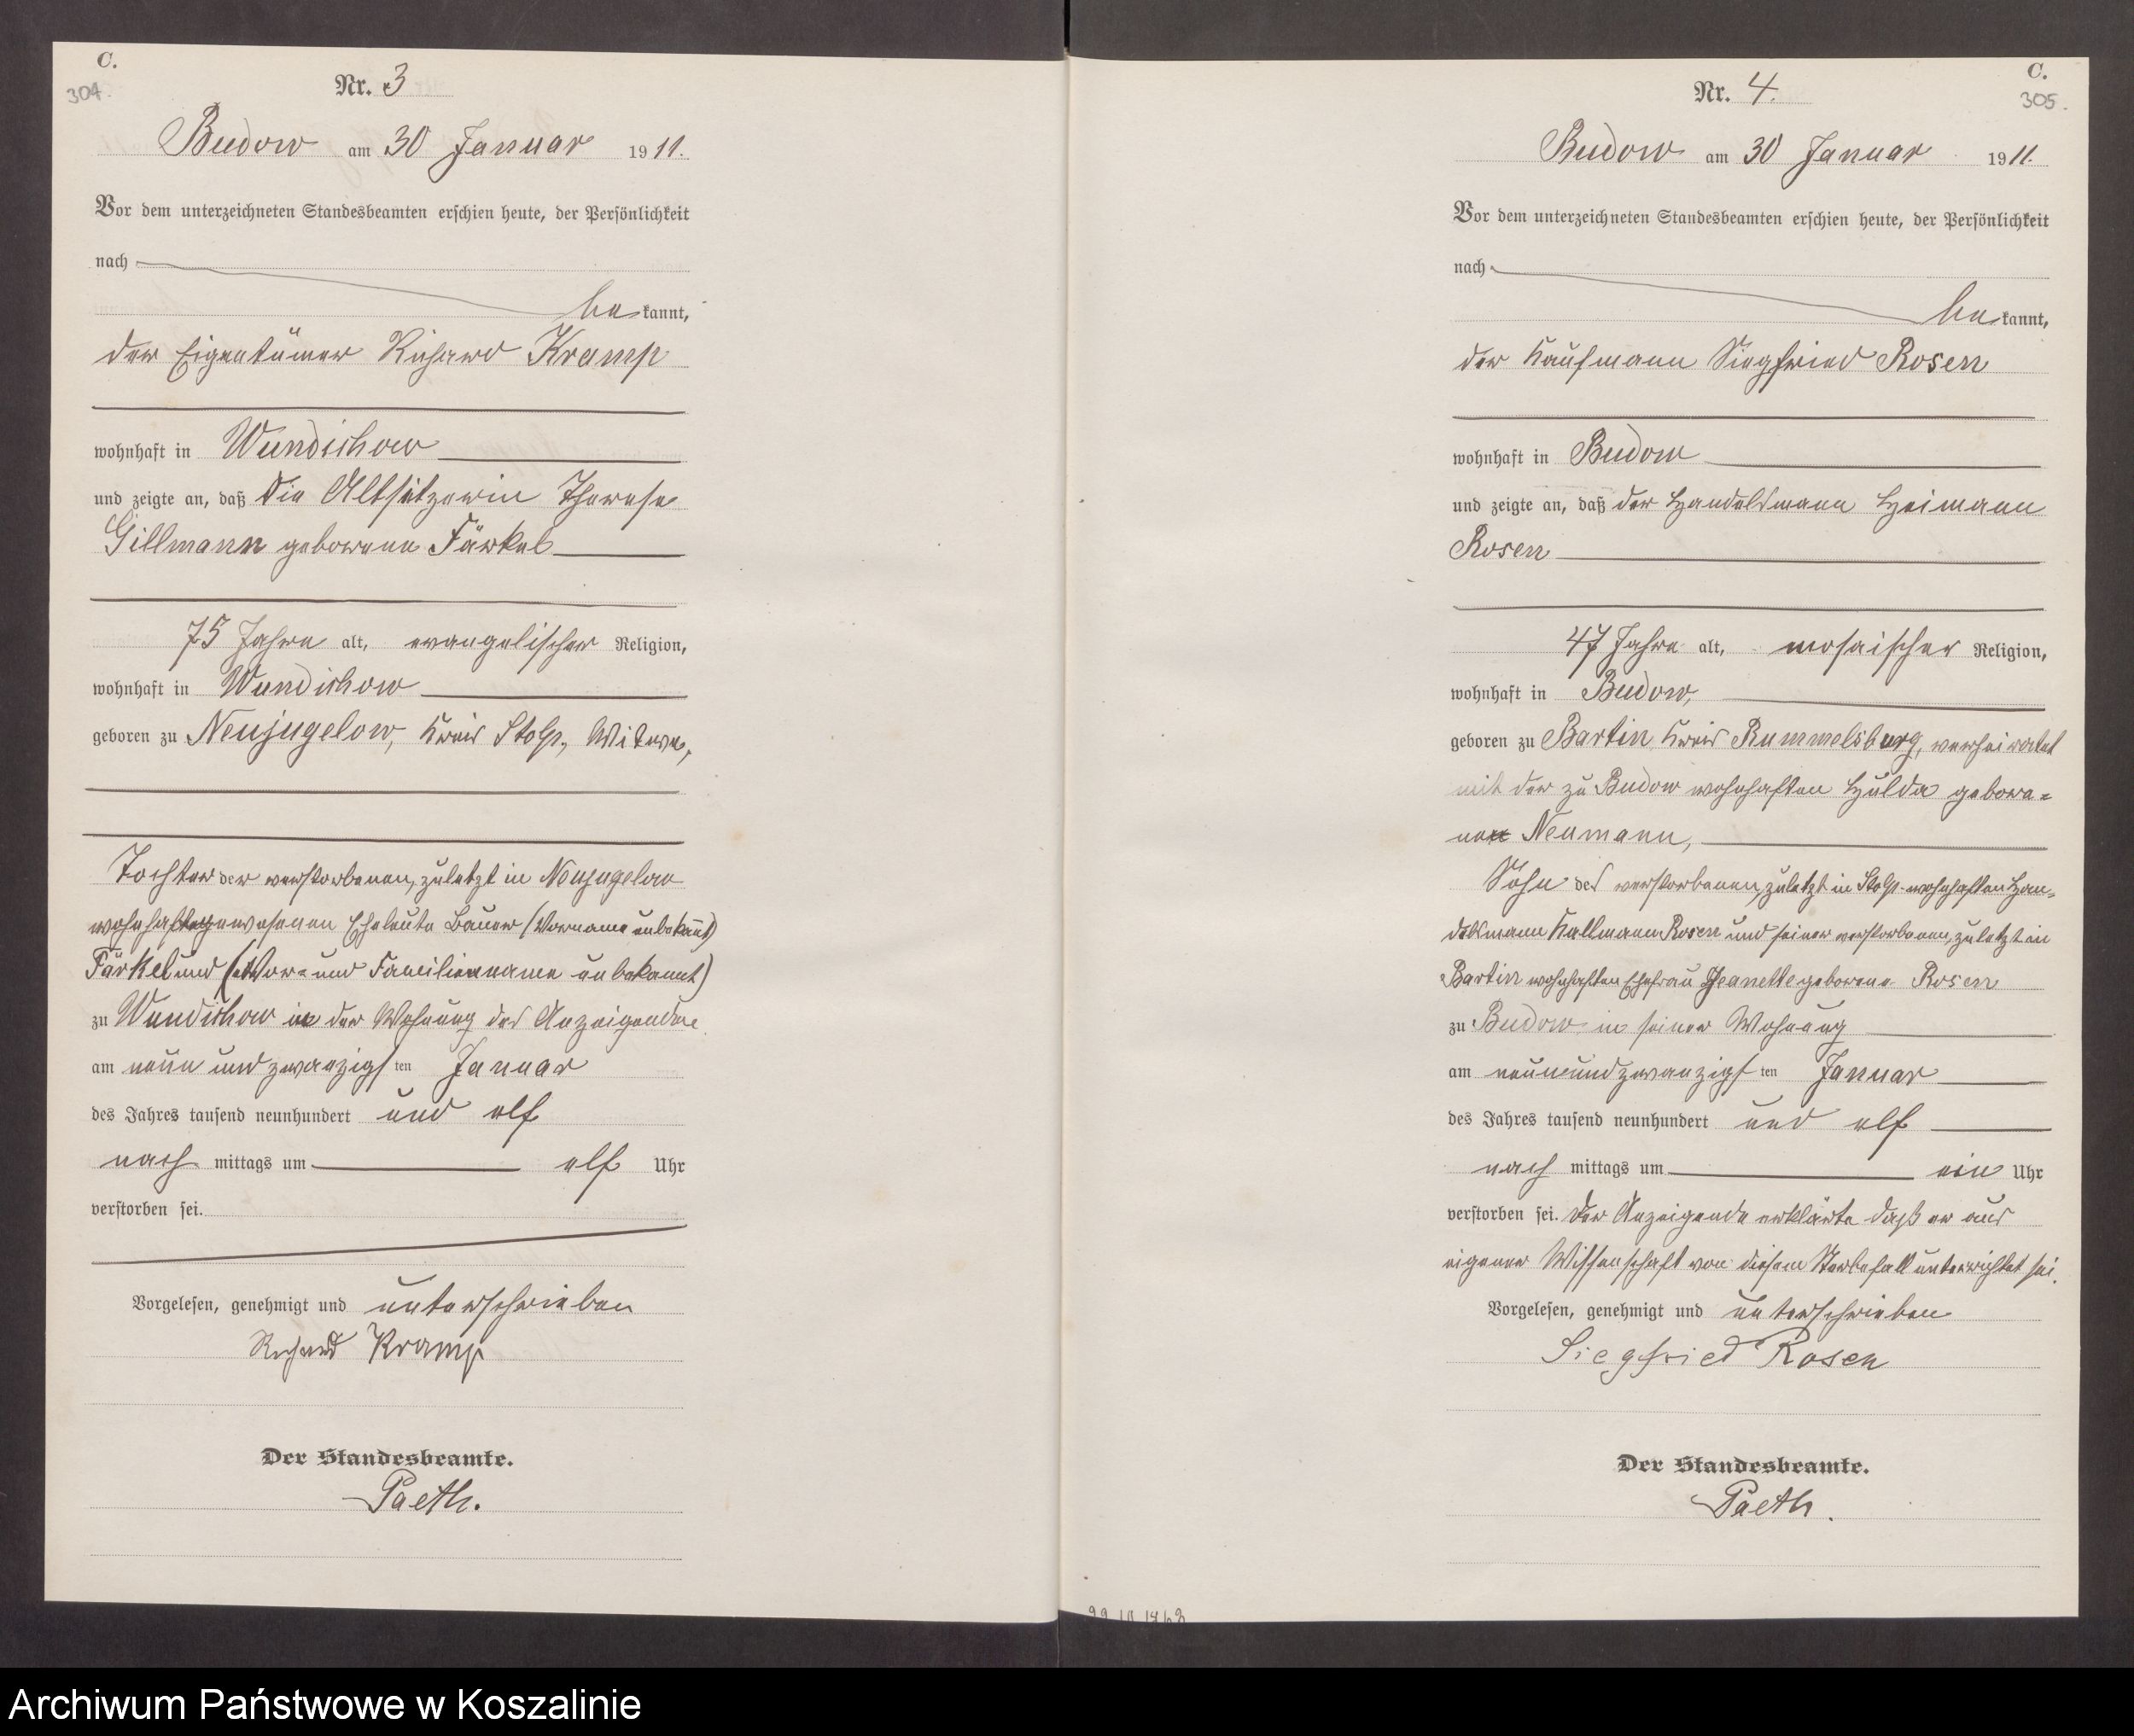 C.
304.
Nr. 3
Budow am 30 Januar 1911.
Vor dem unterzeichneten Standesbeamten erschien heute, der Persönlichkeit
nach
bekannt,
der Eigentümer Richard Kramp
wohnhaft in Wundichow
und zeigte an, daß die Altsitzerin Therese
Gillmann geborene Färkel
75 Jahre alt, evangelischer Religion,
wohnhaft in Wundichow
geboren zu Neujugelow, Kreis Stolp, Witwe,
Tochter der verstorbenen, zuletzt in Neujugelow
wohnhaft gewesenen Eheleute Bauer (Vorname unbekannt)
Färkel und (Vor- und Familienname unbekannt)
zu Wundichow in der Wohnung des Anzeigenden
am neun und zwanzigsten Januar
des Jahres tausend neunhundert und elf
nach mittags um elf Uhr
verstorben sei.
Vorgelesen, genehmigt und unterschrieben
Richard Kramp
Der Standesbeamte.
Paeth.
C.
305.
Nr. 4.
Budow am 30 Januar 1911.
Vor dem unterzeichneten Standesbeamten erschien heute, der Persönlichkeit
nach
bekannt,
der Kaufmann Siegfried Rosen
wohnhaft in Budow
und zeigte an, daß der Handelsmann Heimann
Rosen
47 Jahre alt, mosaischer Religion,
wohnhaft in Budow,
geboren zu Bartin Kreis Rummelsburg, verheiratet
mit der zu Budow wohnhaften Hulda gebore=
nen Neumann,
Sohn des verstorbenen, zuletzt in Stolp wohnhaften Han=
delsmann Kallmann Rosen und seiner verstorbenen, zuletzt in
Bartin wohnhaften Ehefrau Jeanette geborene Rosen
zu Budow in seiner Wohnung
am neunundzwanzigsten Januar
des Jahres tausend neunhundert und elf
nach mittags um ein Uhr
verstorben sei. Der Anzeigende erklärte daß er aus
eigener Wissenschaft von diesem Sterbefall unterrichtet sei.
Vorgelesen, genehmigt und unterschrieben
Siegfried Rosen
Der Standesbeamte.
Paeth.
Archiwum Państwowe w Koszalinie